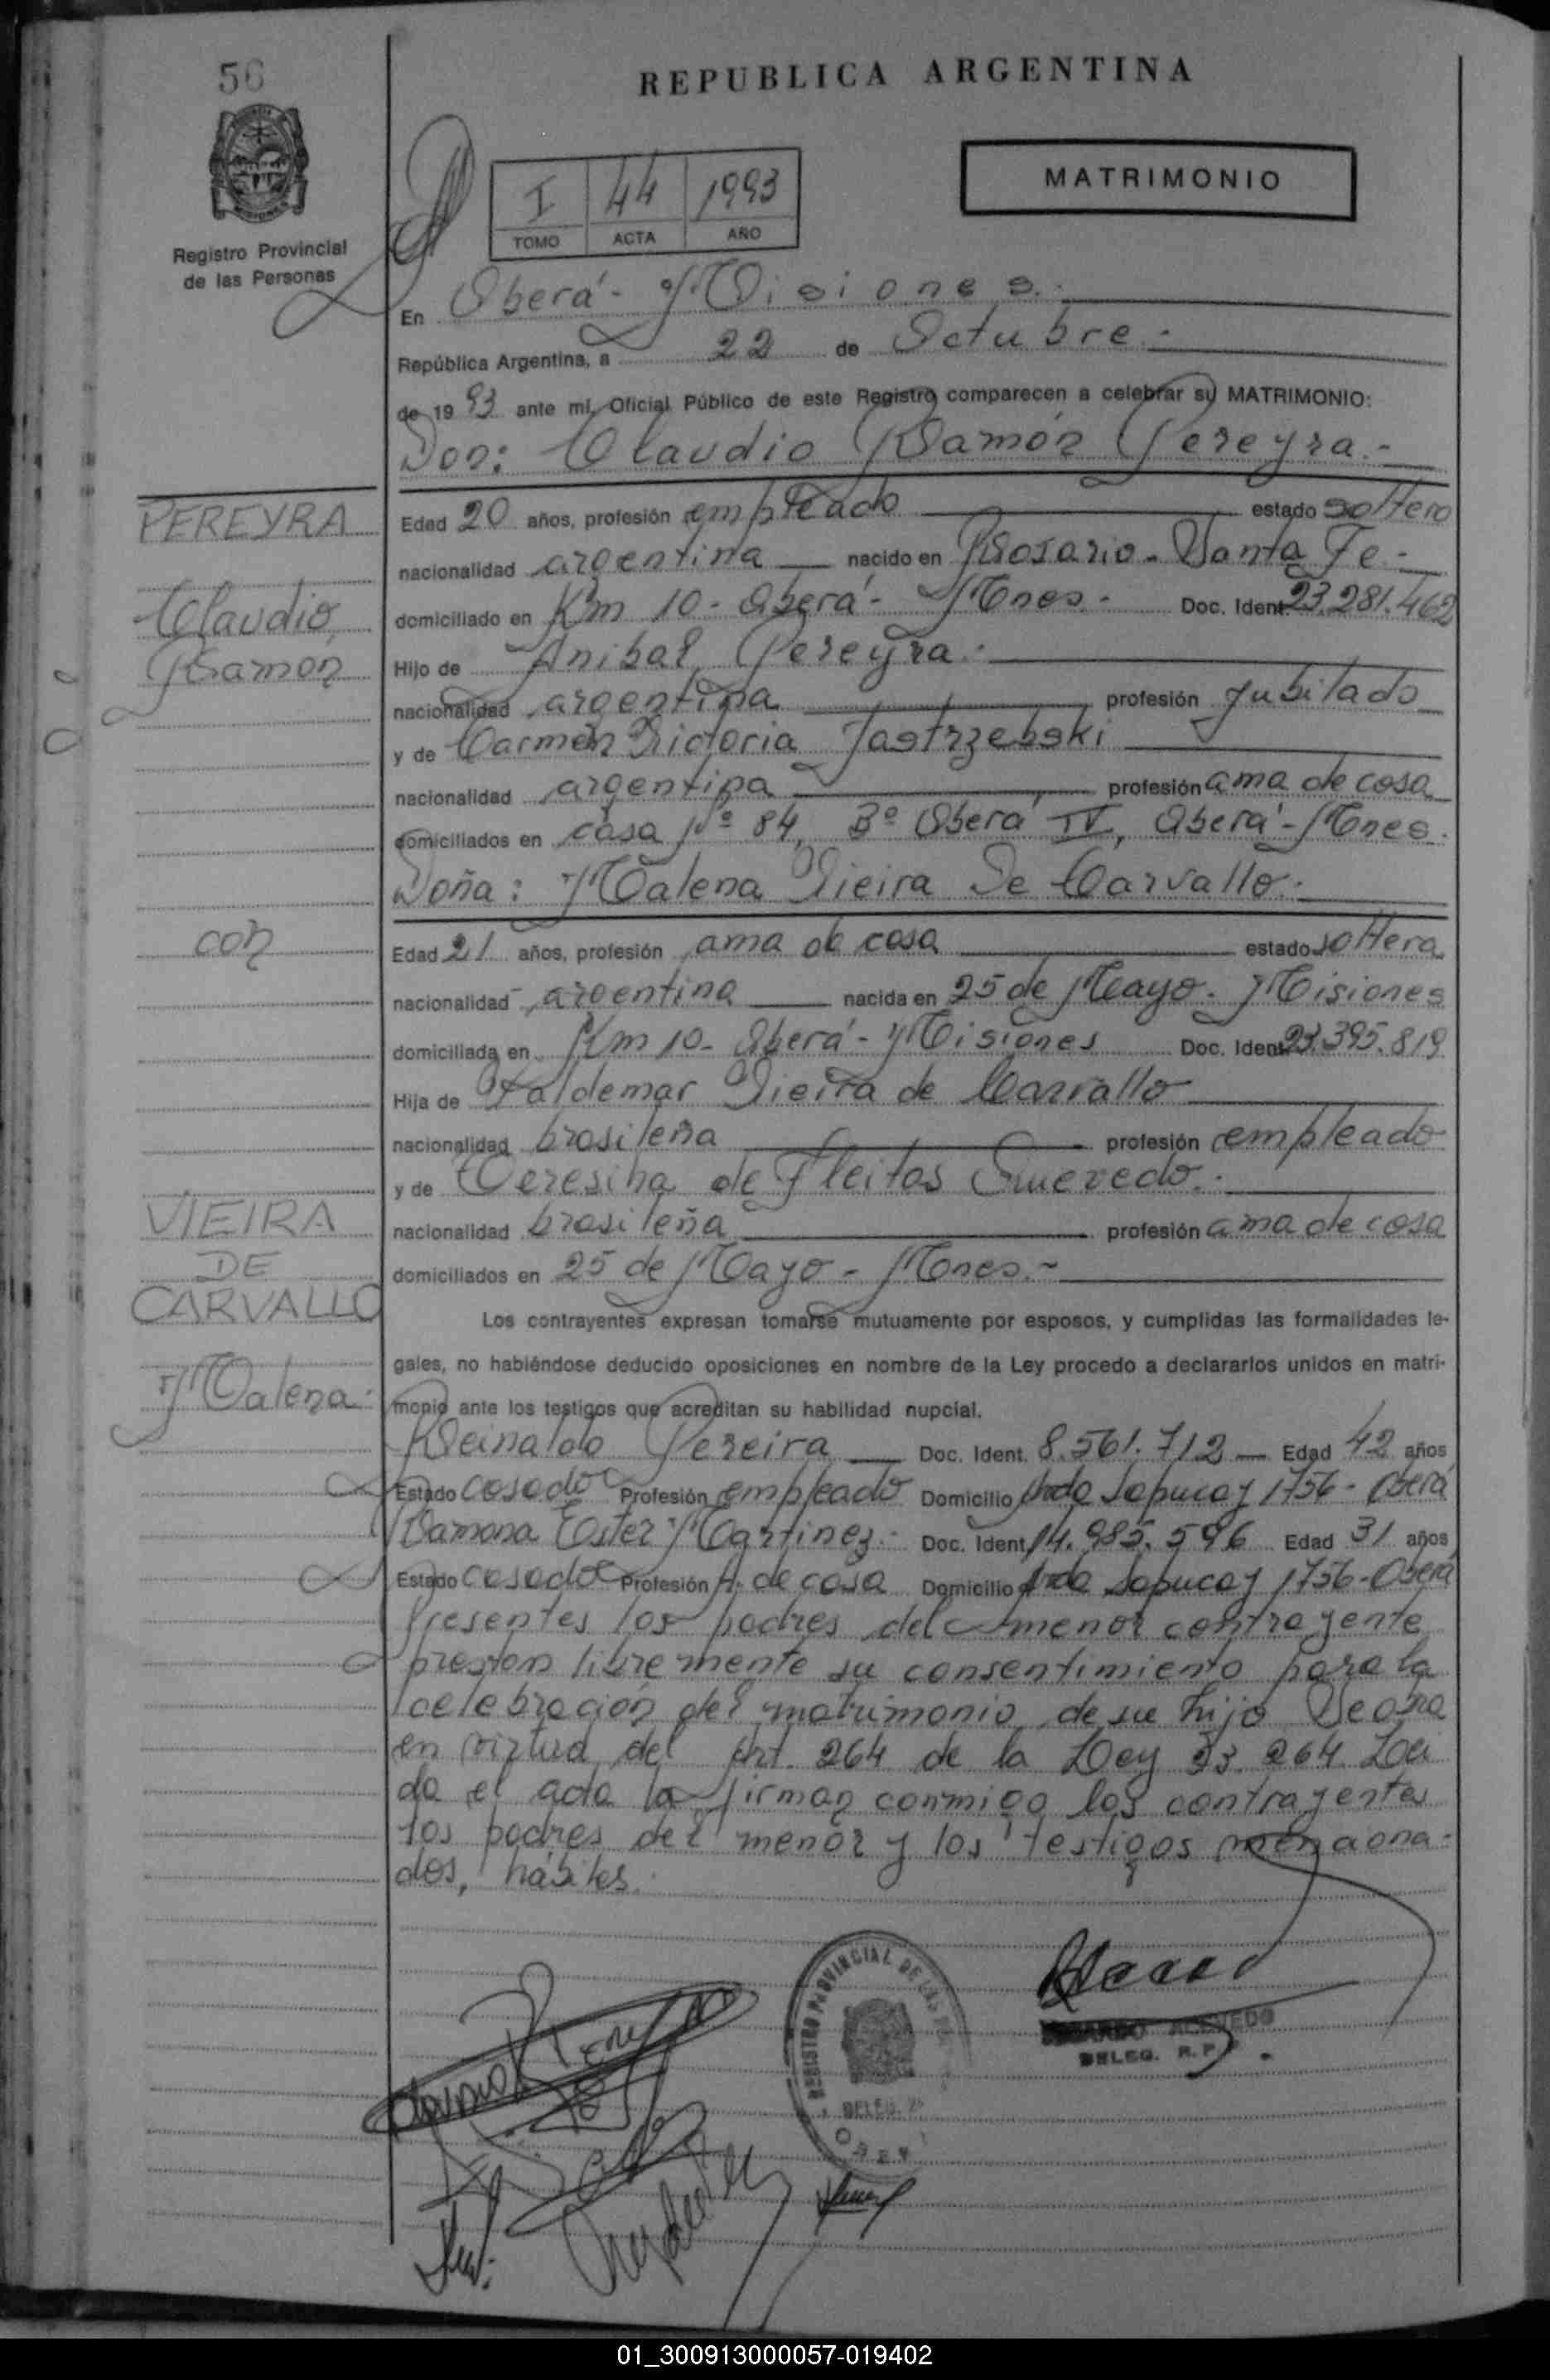 56
REPUBLICA ARGENTINA
MATRIMONIO
I 44 1993
TOMO ACTA AÑO
Registro Provincial
de las Personas
En Oberá - Misiones.-
República Argentina, a 22 de Octubre.-
de 1993 ante mí, Oficial Público de este Registro comparecen a celebrar su MATRIMONIO:
Don: Claudio Ramón Pereyra.-
PEREYRA
Claudio
Ramón
Edad 20 años, profesión empleado estado soltero
nacionalidad argentina nacido en Rosario - Santa Fe.-
domiciliado en Km 10 - Oberá - Mnes.- Doc. Ident. 23.281.462
Hijo de Anibal Pereyra.-
nacionalidad argentina profesión jubilado
y de Carmen Victoria Jastrzebski
nacionalidad argentina profesión ama de casa
domiciliados en casa Nº 84, Bº Oberá IV, Oberá - Mnes.
Doña: Malena Vieira De Carvallo.-
con
Edad 21 años, profesión ama de casa estado soltera
nacionalidad argentina nacida en 25 de Mayo. Misiones
domiciliada en Km 10 - Oberá - Misiones Doc. Ident. 23.395.819
Hija de Valdemar Vieira de Carvallo
nacionalidad brasileña profesión empleado
y de Teresiña de Fleitas Quevedo.-
VIEIRA
DE
CARVALLO
Malena.-
nacionalidad brasileña profesión ama de casa
domiciliados en 25 de Mayo - Mnes.-
Los contrayentes expresan tomarse mutuamente por esposos, y cumplidas las formalidades le-
gales, no habiéndose deducido oposiciones en nombre de la Ley procedo a declararlos unidos en matri-
monio ante los testigos que acreditan su habilidad nupcial.
Reinaldo Pereira Doc. Ident. 8.561.712 Edad 42 años
Estado casado Profesión empleado Domicilio Avda Sapucay 1756 - Oberá
Ramona Ester Martinez.- Doc. Ident. 14.985.596 Edad 31 años
Estado casado Profesión A. de casa Domicilio Avda Sapucay 1756 - Oberá
Presentes los padres del menor contrayente
prestan libremente su consentimiento para la
celebración del matrimonio de su hijo
en virtud del Art. 264 de la Ley 23.264. Leí
da el acta la firman conmigo los contrayentes
los padres del menor y los testigos menciona-
dos, hábiles.
REGISTRO PROVINCIAL DE LAS
DELEG.
OBERA
ACEVEDO
DELEG. R.P.
01_300913000057-019402